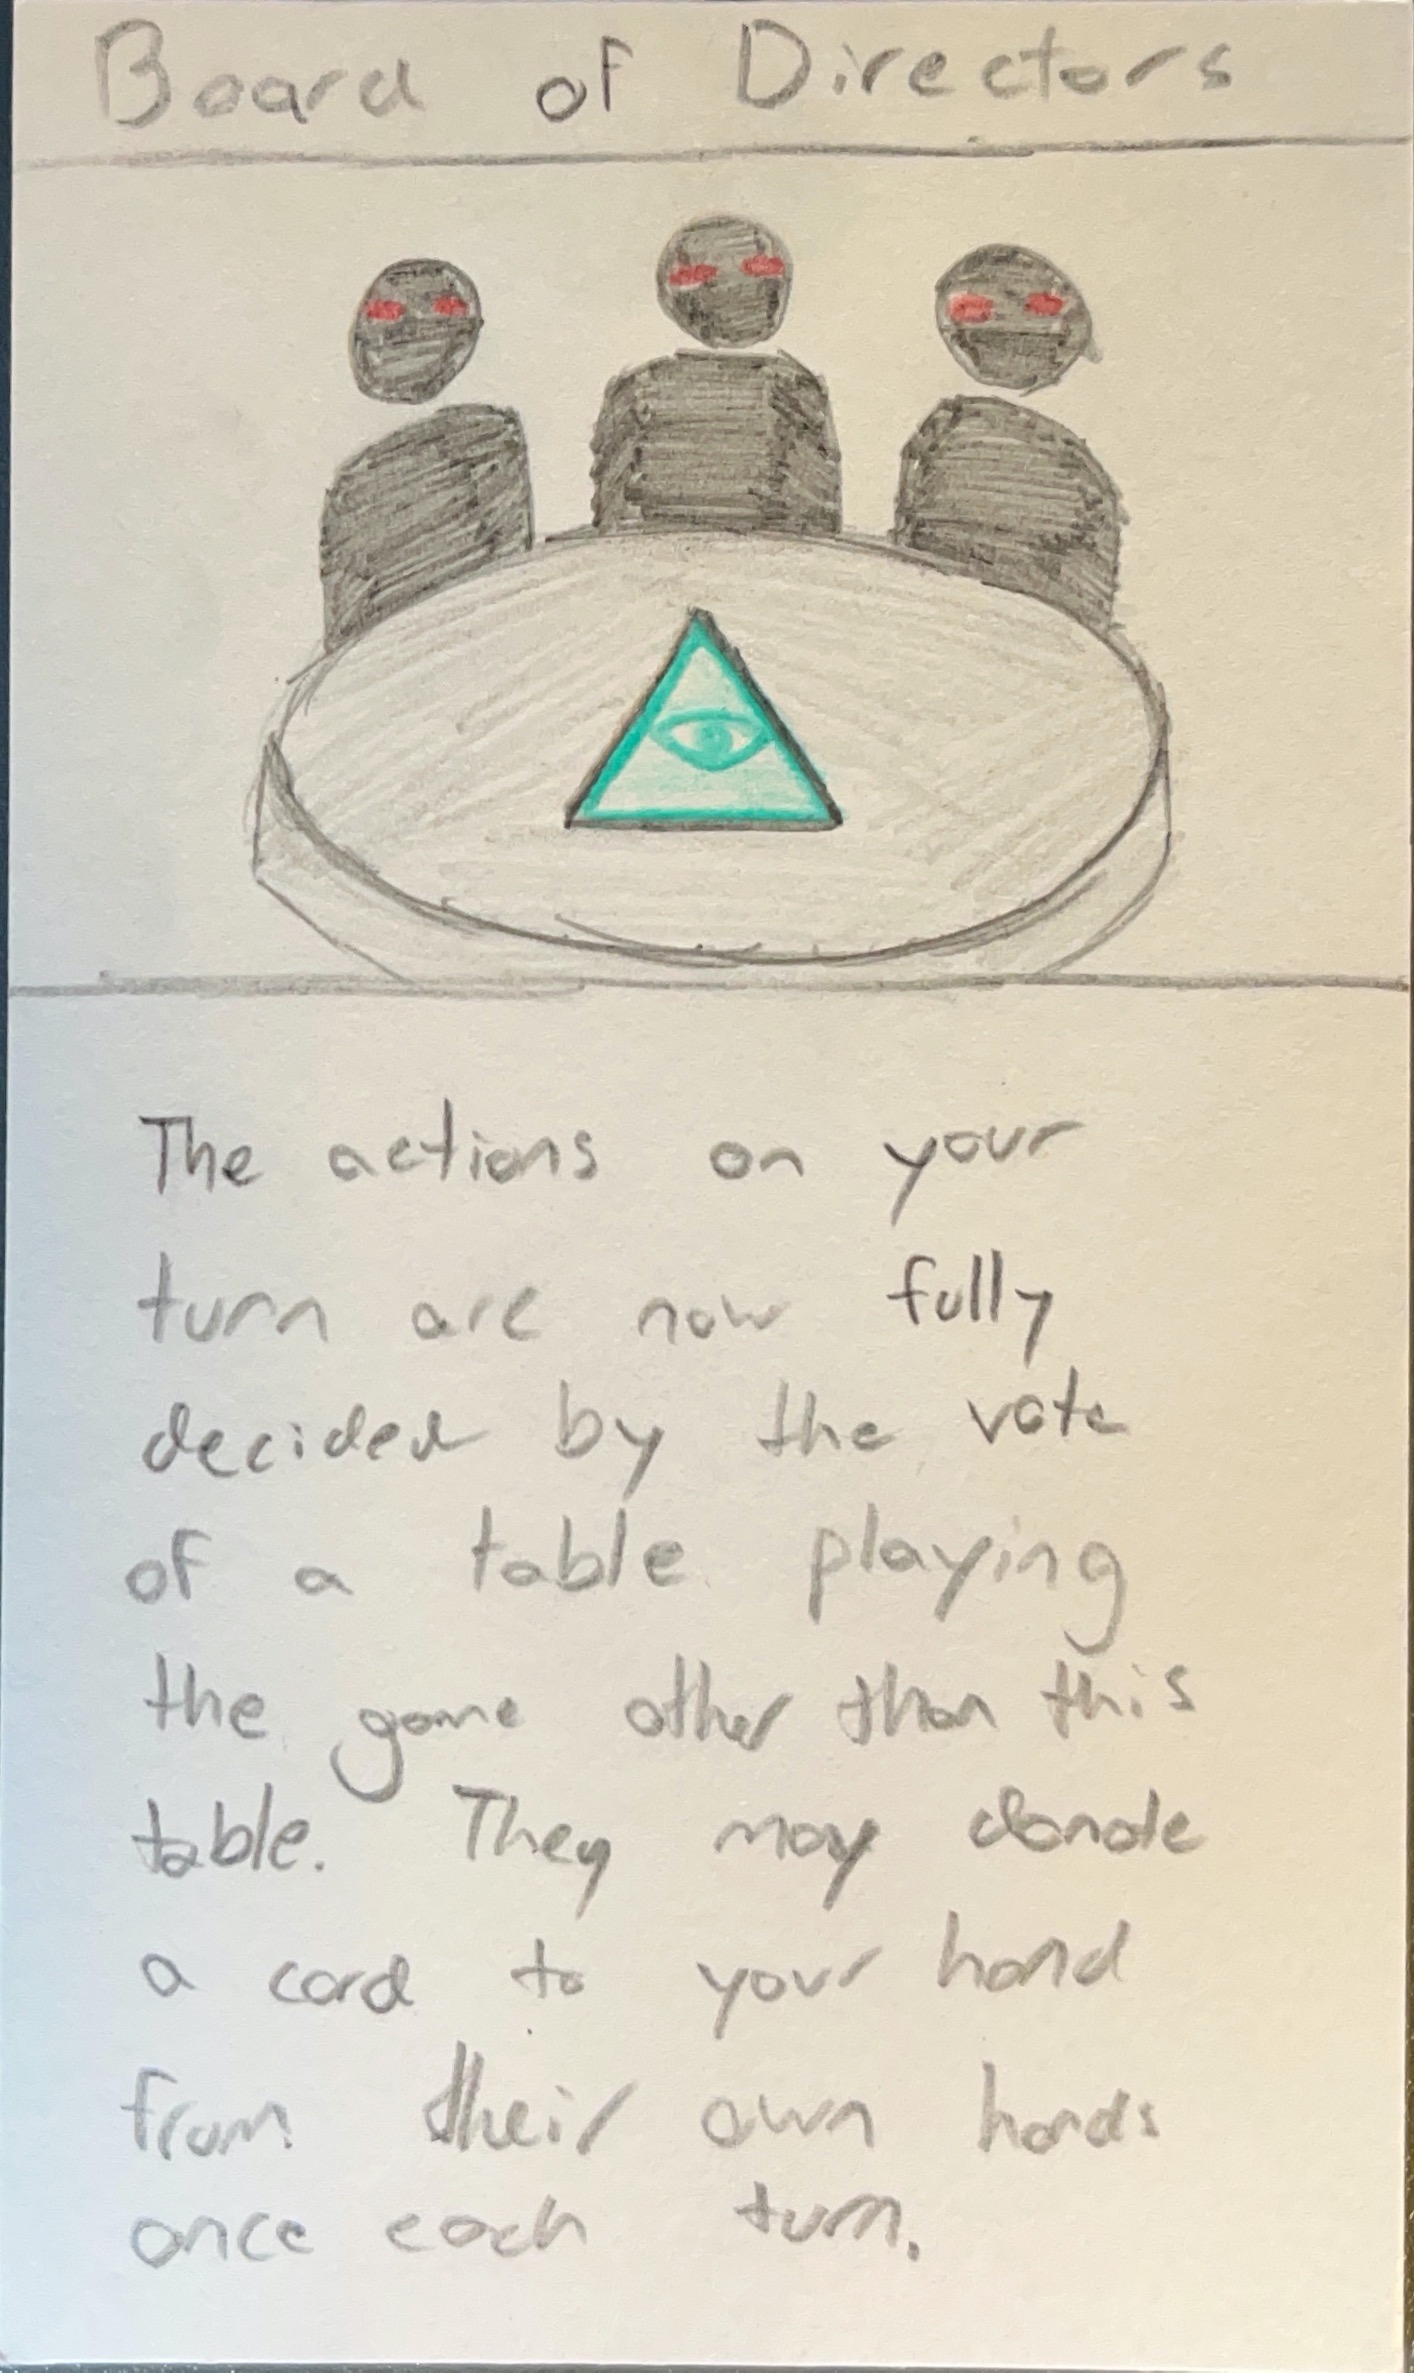 Board of Directors
The actions on your
turn are now fully
decided by the vote
of a table playing
the game other than this
table. They may donate
a card to your hand
from their own hands
once each turn.